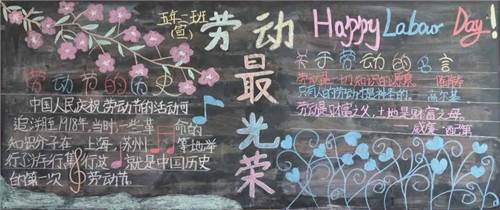 五年二班
(宣)
劳动最光荣
Happy Labaor Day!
劳动节的历史
中国人民庆祝劳动节的活动可
追溯至1918年.当时,一些革命的
知识分子在上海,苏州、等地举
行 就是中国历史
的第一次劳动节。
关于劳动的名言
劳动是一切知识的源泉 陶铸
只有人的劳动才是神圣的。高尔基
劳动是财富之父,土地是财富之母。
——威廉·配第